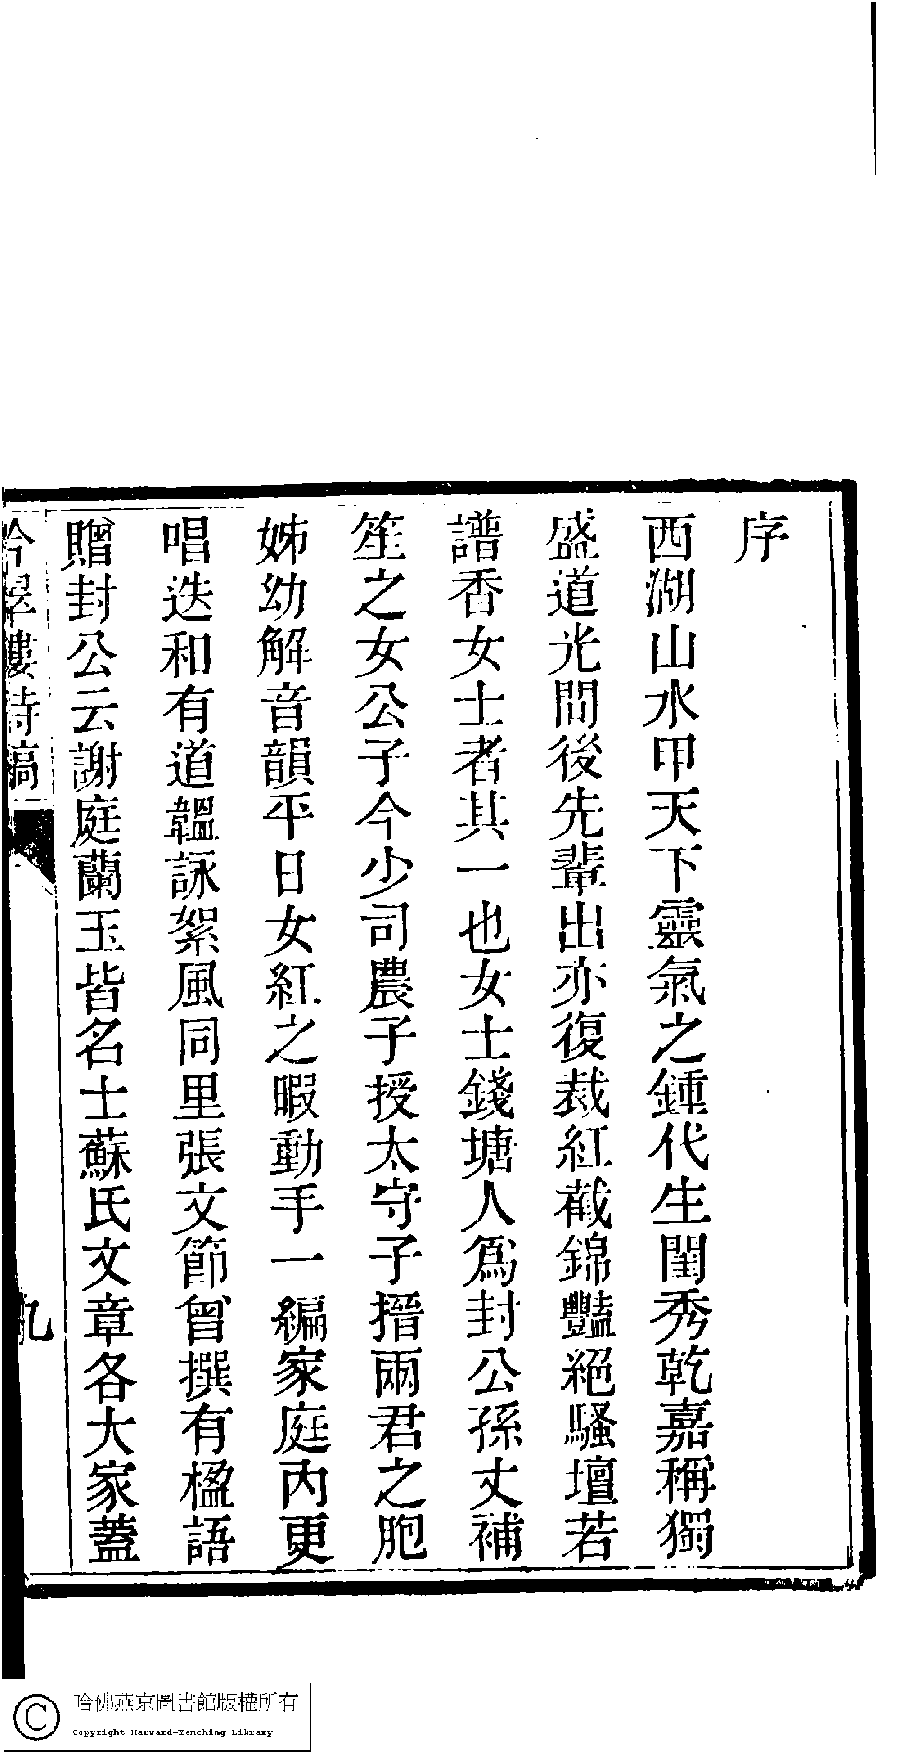 序
西湖山水甲天下靈氣之鍾代生閨秀乾嘉稱獨
盛道光間後先輩出亦復裁紅截錦豔絕騷壇若
譜香女士者其一也女士錢塘人爲封公孫丈補
笙之女公子今少司農子授太守子搢兩君之胞
姊幼解音韻平日女紅之暇動手一編家庭內更
唱迭和有道韞詠絮風同里張文節曾撰有楹語
贈封公云謝庭蘭玉皆名士蘇氏文章各大家蓋
吟翠樓詩稿
九
哈佛燕京圖書館版權所有
Copyright Harvard-Yenching Library